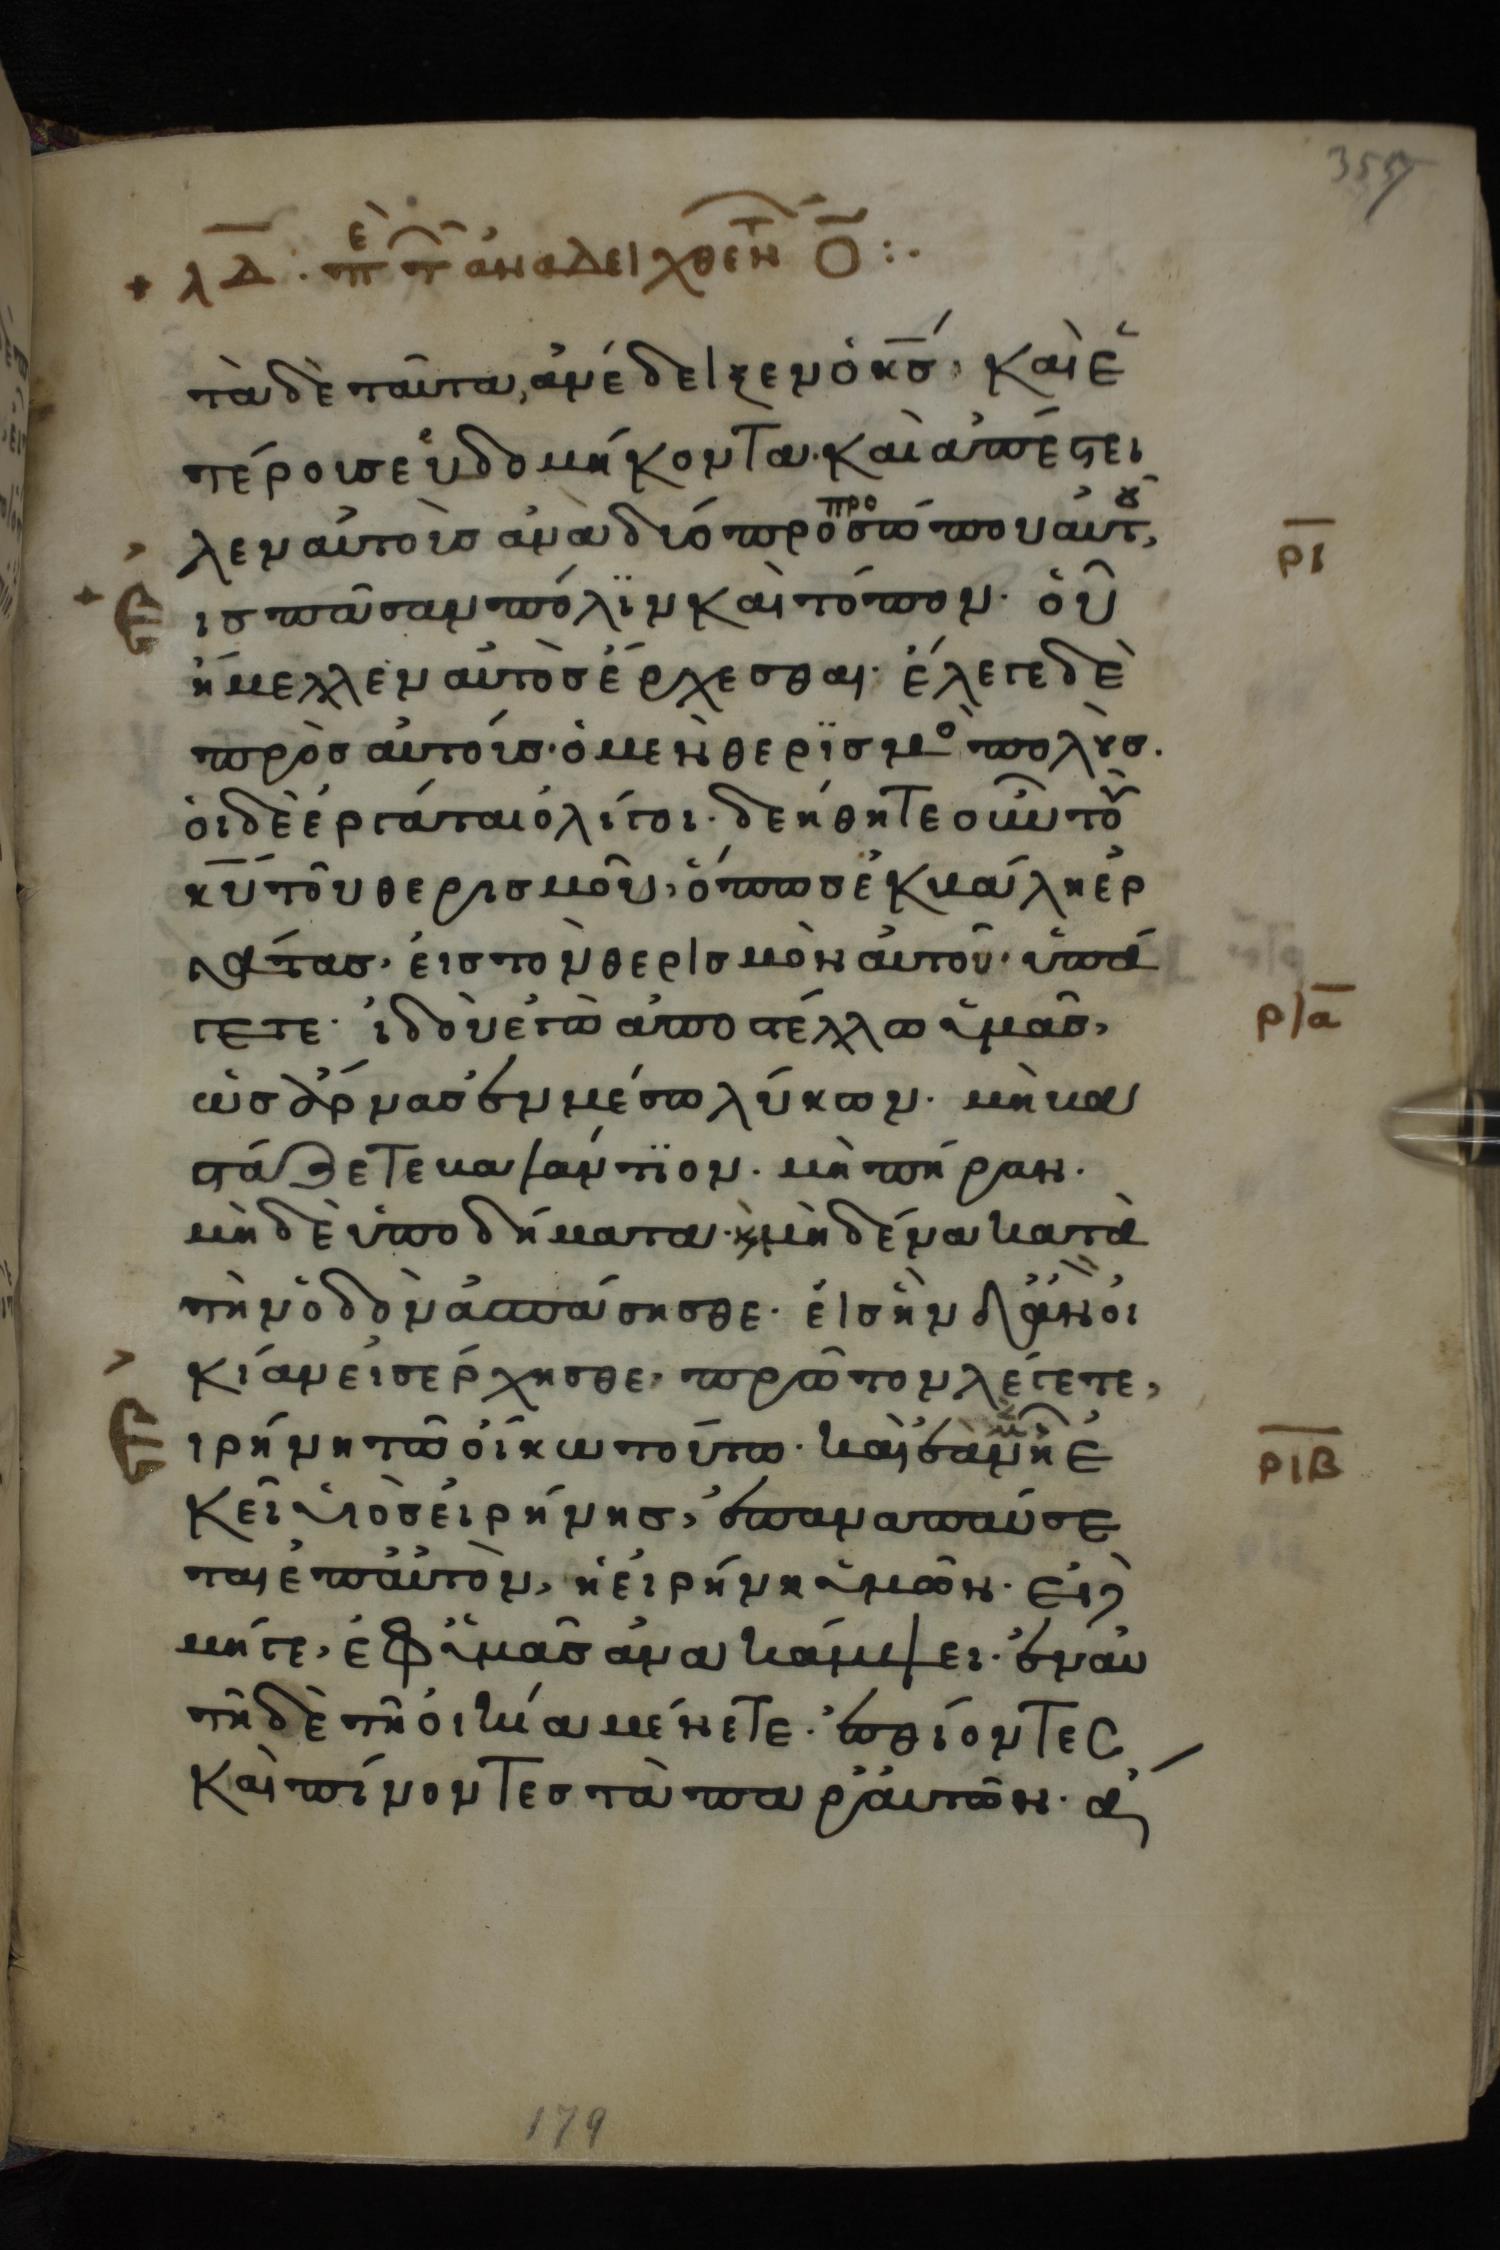 355
+ λ̅δ̅. περὶ τῶν ἀναδειχθέντ(ων) ο̅ :·
τὰ δὲ ταῦτα, ἀνέδειξεν ὁ κ̅σ̅, καὶ ἑ
τέρουσ ἑβδομήκοντα· καὶ ἀπέστει
λεν αὐτοὺσ ἀνὰ δύο πρὸ προσώπου αὐτοῦ,
ρι̅
+ Ἐ
ισ πᾶσαν πόλϊν καὶ τόπον· οὗ
ἤμελλεν αὐτὸσ ἔρχεσθαι· ἔλεγε δὲ
πρὸσ αὐτούσ· ὁ μὲν θερϊσμὸσ πολὺσ.
ὁι δὲ ἐργάται ὀλίγοι· δεήθητε οὖν τοῦ
κ̅υ̅ τοῦ θερισμοῦ, ὅπωσ ἐκβάλη ἐρ
γάτασ, εἰσ τὸν θερισμὸν αὐτοῦ· ὑπά
γετε· ἰδοὺ ἐγὼ ἀποστέλλω ὑμᾶσ,
ρια̅
ὡσ ἄρνασ ἐν μέσω λύκων· μὴ βα
στάζετε βαλάντϊον· μὴ πήραν·
μὴδὲ ὑποδήματα· κ(αὶ) μὴδένα κατὰ
τὴν ὁδὸν ἀσπάσησθε· εἰσ ἣν δ᾽ ἂν οἰ
κίαν εἰσέρχησθε, πρῶτον λέγετε,
Ἐ
ιρήνη τῶ οἴκω τούτω· καὶ ἐὰν μὲν ἦ ἐ
ριβ̅
κεῖ υἱὸσ εἰρήνησ, ἐπαναπαύσε
ται ἐπ᾽ αὐτὸν, ἡ εἰρήνη ὑμῶν· εἰ δὲ
μήγε, ἐφ᾽ ὑμᾶσ ἀνακάμψει· ἐν αὐ
τῆ δὲ τῆ οἰκία μένετε· ἐσθίοντεσ
καὶ πίνοντεσ τὰ παρ᾽ αὐτῶν· ἄ
179